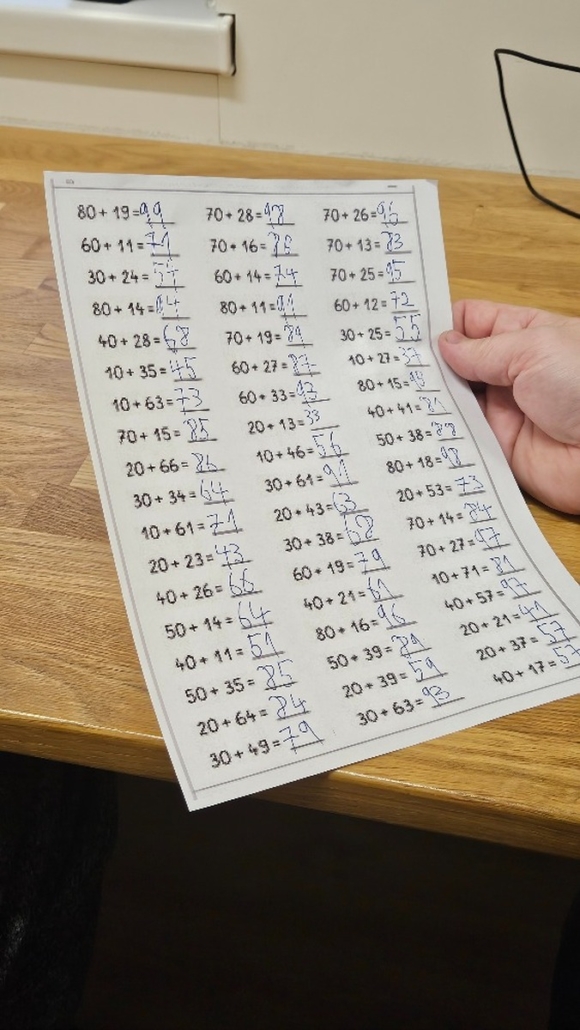 80 + 19 = 99
60 + 11 = 71
30 + 24 = 54
80 + 14 = 94
40 + 28 = 68
10 + 35 = 45
10 + 63 = 73
70 + 15 = 85
20 + 66 = 86
30 + 34 = 64
10 + 61 = 71
20 + 23 = 43
40 + 26 = 66
50 + 14 = 64
40 + 11 = 51
50 + 35 = 85
20 + 64 = 84
30 + 49 = 79
70 + 28 = 98
70 + 16 = 86
60 + 14 = 74
80 + 11 = 91
70 + 19 = 89
60 + 27 = 87
60 + 33 = 93
20 + 13 = 33
10 + 46 = 56
30 + 61 = 91
20 + 43 = 63
30 + 38 = 68
60 + 19 = 79
40 + 21 = 61
80 + 16 = 96
50 + 39 = 89
20 + 39 = 59
30 + 63 = 93
70 + 26 = 96
70 + 13 = 83
70 + 25 = 95
60 + 12 = 72
30 + 25 = 55
10 + 27 = 37
80 + 15 =
40 + 41 = 81
50 + 38 = 88
80 + 18 = 98
20 + 53 = 73
70 + 14 = 84
70 + 27 = 97
10 + 71 = 81
40 + 57 = 97
20 + 21 = 41
20 + 37 = 57
40 + 17 = 57